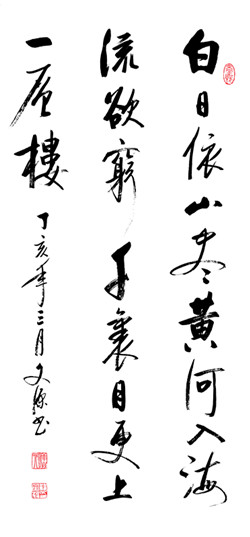 白日依山尽黄河入海
流欲窮千裏目更上
一层樓
丁亥年三月文源书